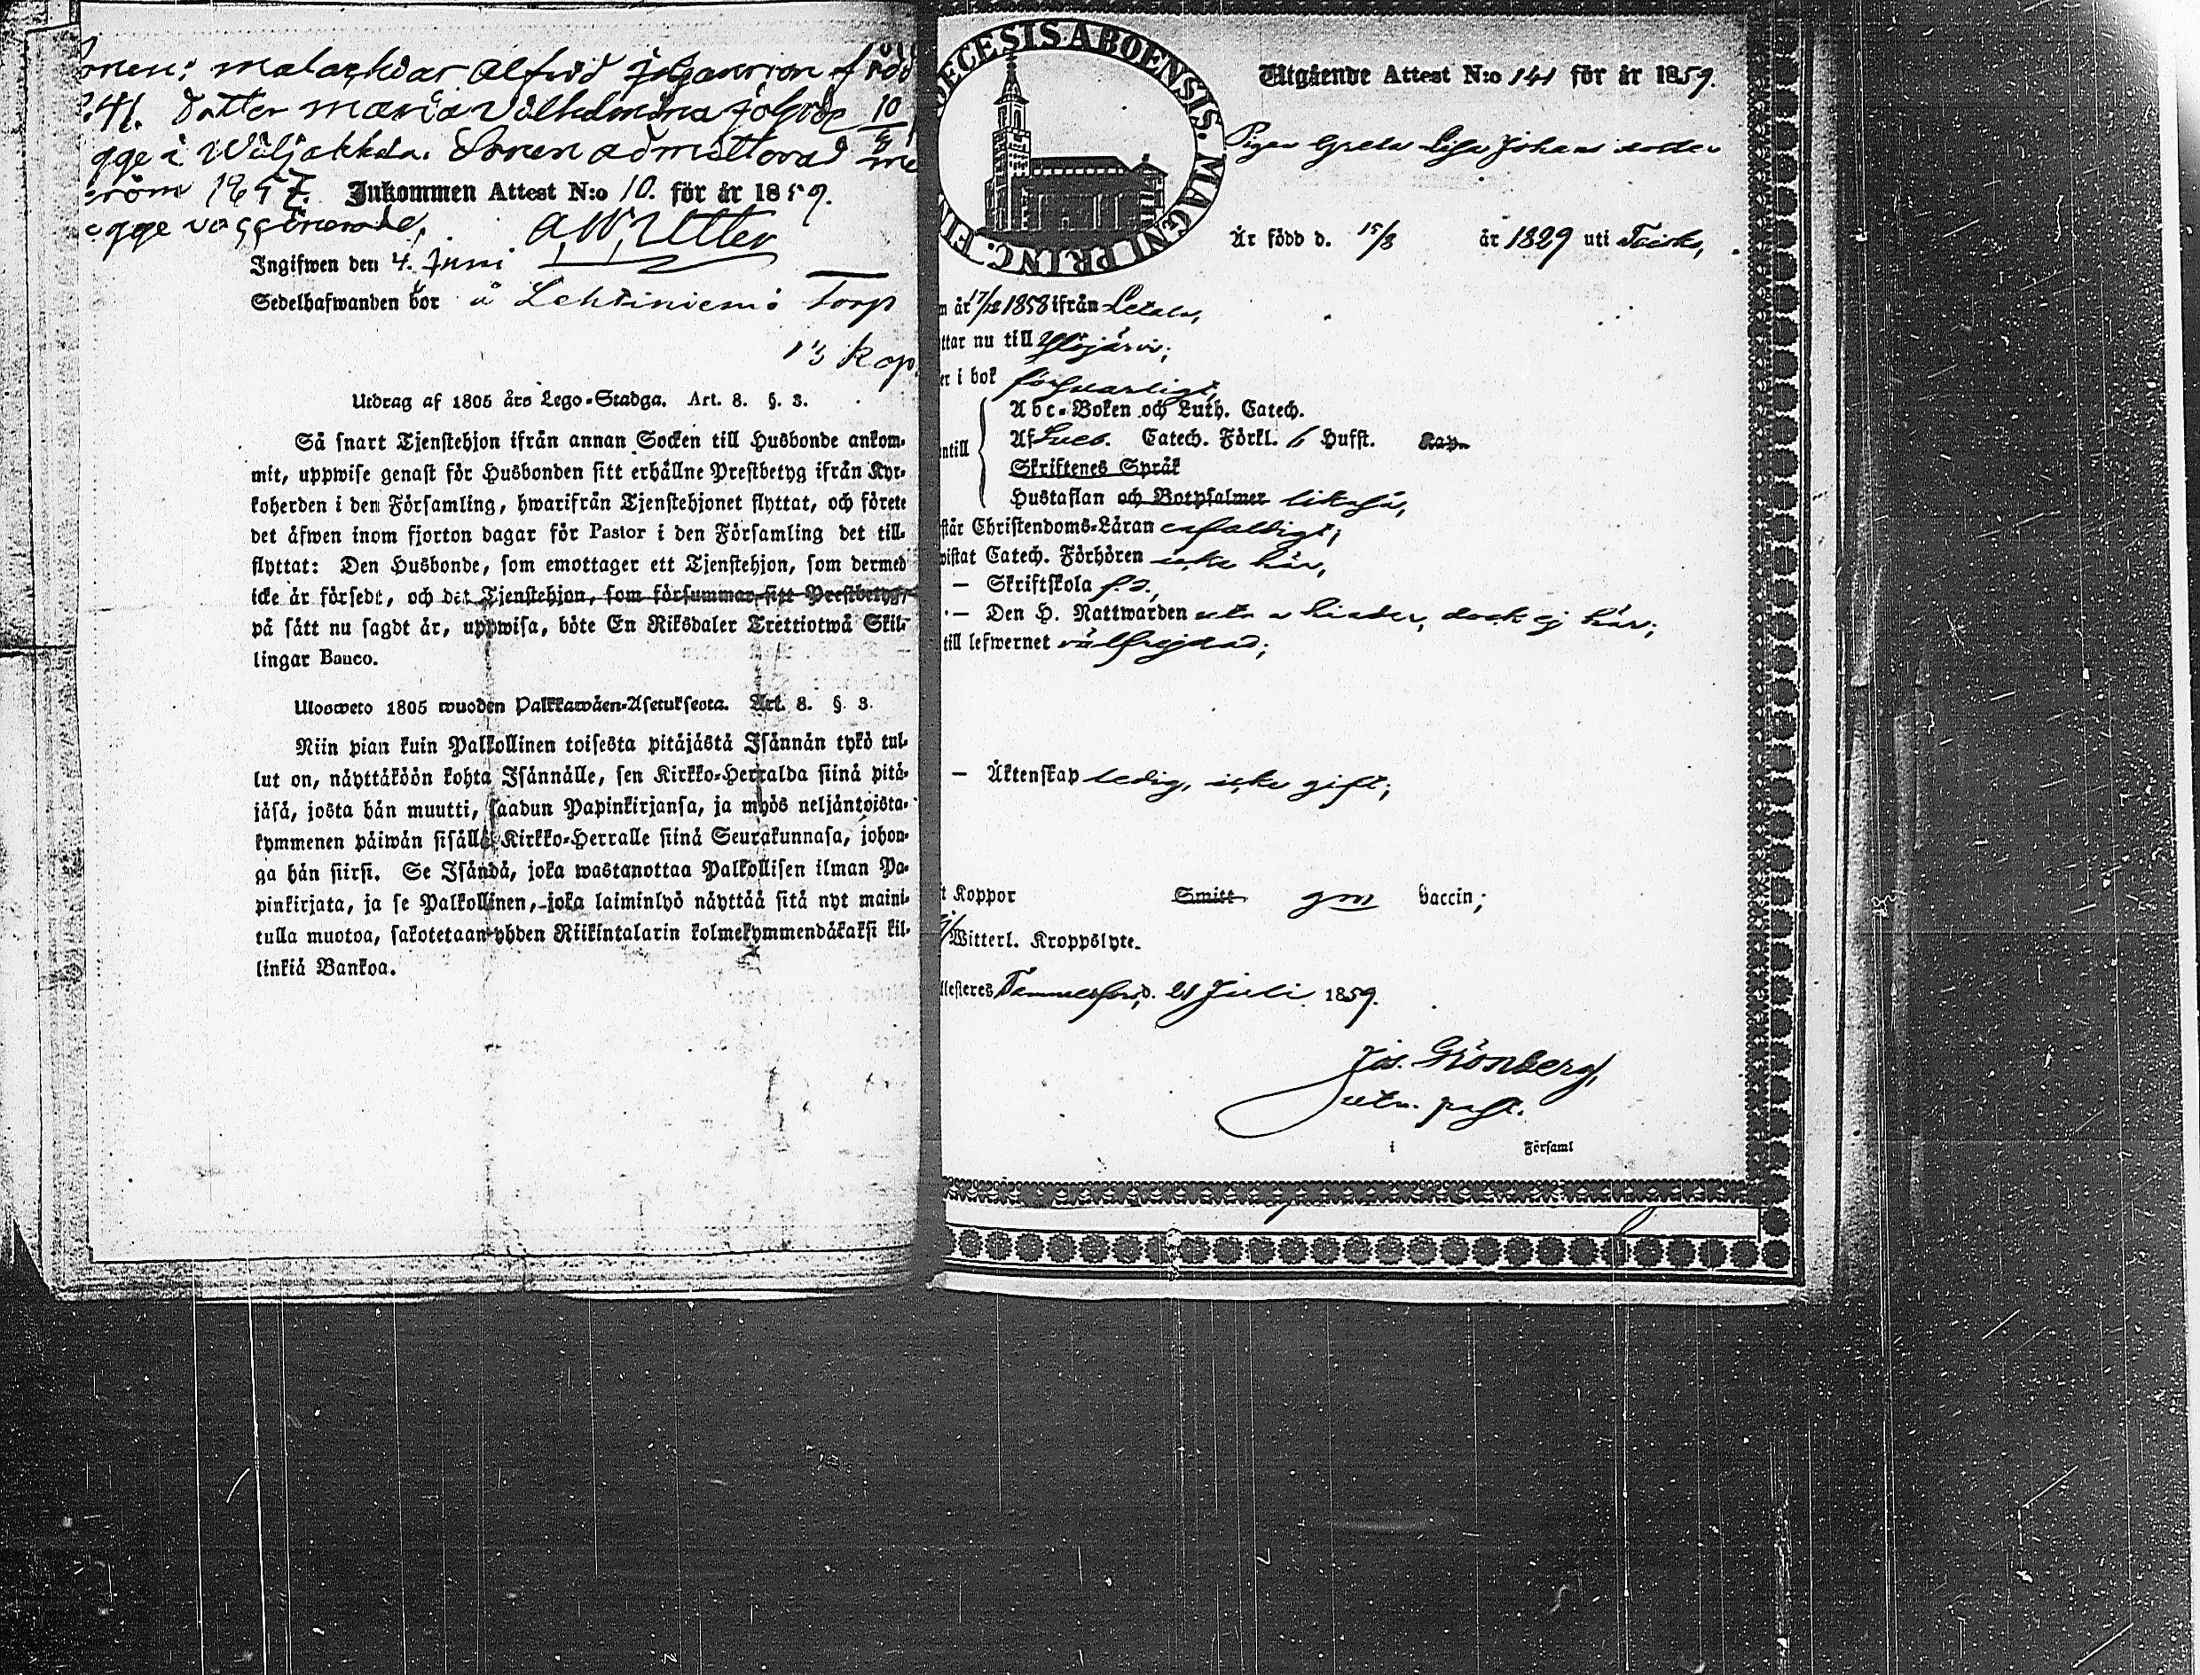 malarhdar Alfrid Johansson född
41. Dotter Maria Vilhelmina Johsdr 10
Sonen admitterad
1857. Inkommen Attest N:o 10. för år 1859.
Ingifwen den 4. Juni
Sedelhafwanden bor å Lehtiniemi Torp
kop
Utdrag af 1805 års Lego-Stadga. Art. 8. §. 3.
Så snart Tjenstehjon ifrån annan Socken till Husbonde ankom-
mit, uppwise genast för Husbonden sitt erhållne Prestbetyg ifrån Kyr-
koherden i den Församling, hwarifrån Tjenstehjonet flyttat, och förete
det äfwen inom fjorton dagar för Pastor i den Församling det till-
flyttat: Den Husbonde, som emottager ett Tjenstehjon, som dermed
icke är försedt, och det Tjenstehjon, som försummar sitt Prestbetyg,
på sätt nu sagdt är, uppwisa, böte En Riksdaler Trettiotwå Skil-
lingar Banco.
Ulosweto 1805 wuoden Palkkawäen-Asetuksesta. Art. 8. §. 3.
Niin pian kuin Palkollinen toisesta pitäjästä Isännän tykö tul-
lut on, näyttäköön kohta Isännälle, sen Kirkko-Herralda siinä pitä-
jäsä, josta hän muutti, saadun Papinkirjansa, ja myös neljäntoista-
kymmenen päiwän sisällä Kirkko-Herralle siinä Seurakunnasa, johon-
ga hän siirsi. Se Isändä, joka wastanottaa Palkollisen ilman Pa-
pinkirjata, ja se Palkollinen, joka laiminlyö näyttää sitä nyt maini-
tulla muotoa, sakotetaan yhden Riikintalarin kolmekymmendäkaksi kil-
linkiä Bankoa.
DECESIS ABOENSIS. MAGNI PRINC. FIN
Utgående Attest N:o 141 för år 1859.
Pigan Greta Lisa Johans dotter
Är född d. 15/8 år 1829 uti
år 17/12 1858 ifrån Letala,
ttar nu till Ylöjärvi;
er i bok försvarligt,
Abc-Boken och Luth. Catech.
Af Sveb. Catech. Förkl. 6 Hufst. Kap.
ntill
Skriftenes Språk
Hustaflan och Botpsalmer likaså,
står Christendoms-Läran enfaldigt;
wistat Catech. Förhören icke här,
— Skriftskola
— Den H. Nattwarden utan hinder, dock ej här;
till lefwernet välfrejdad;
— Äktenskap ledig, icke gift;
t Koppor Smitt gm vaccin;
Witterl. Kroppslyte.
llesteres Tammerfors, d. 21 Juli 1859.
Jos. Grönberg,
i Församl